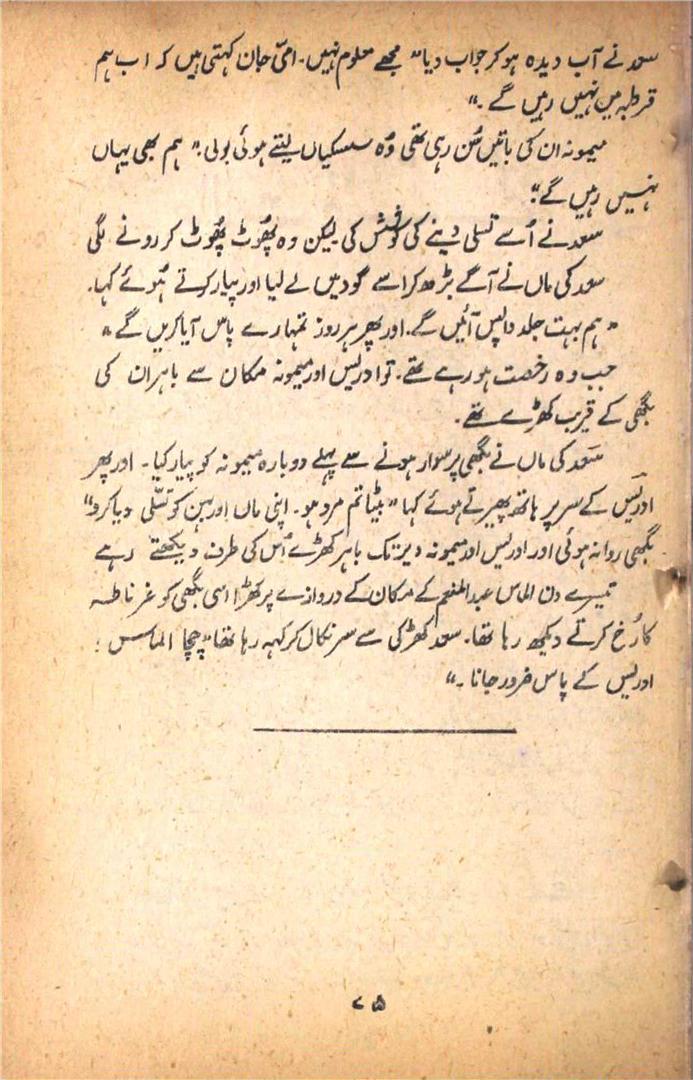 سعد نے آب دیدہ ہو کر جواب دیا "مجھے معلوم نہیں۔ امّی جان کہتی ہیں کہ اب ہم
قرطبہ میں نہیں رہیں گے۔"
میمونہ ان کی باتیں سُن رہی تھی وُہ سسکیاں لیتے ہوئی بولی: "ہم بھی یہاں
نہیں رہیں گے"
سعد نے اُسے تسلی دینے کی کوشش کی لیکن وہ پھُوٹ پھُوٹ کر رونے لگی
سعد کی ماں نے آگے بڑھ کر اسے گود میں لے لیا اور پیار کرتے ہُوئے کہا۔
"ہم بہت جلد واپس آئیں گے۔ اور پھر ہر روز تمہارے پاس آیا کریں گے"
جب وہ رخصت ہو رہے تھے۔ تو ادریس اور میمونہ مکان سے باہر ان کی
بگھی کے قریب کھڑے تھے۔
سَعد کی ماں نے بگھی پر سوار ہونے سے پہلے دوبارہ میمونہ کو پیار کیا۔ اور پھر
ادریس کے سر پر ہاتھ پھیرتے ہوئے کہا "بیٹا تم مرد ہو۔ اپنی ماں اور بہن کو تسلّی دیا کرو"
بگھی روانہ ہوئی اور ادریس اور میمونہ دیر تک باہر کھڑے اُس کی طرف دیکھتے رہے
تیسرے دن الماس عبدالمنعم کے مکان کے دروازے پر کھڑا اسی بگھی کو غرناطہ
کا رُخ کرتے دیکھ رہا تھا۔ سعد کھڑکی سے سر نکال کر کہہ رہا تھا "چچا الماس!
ادریس کے پاس ضرور جانا۔"
۷۵